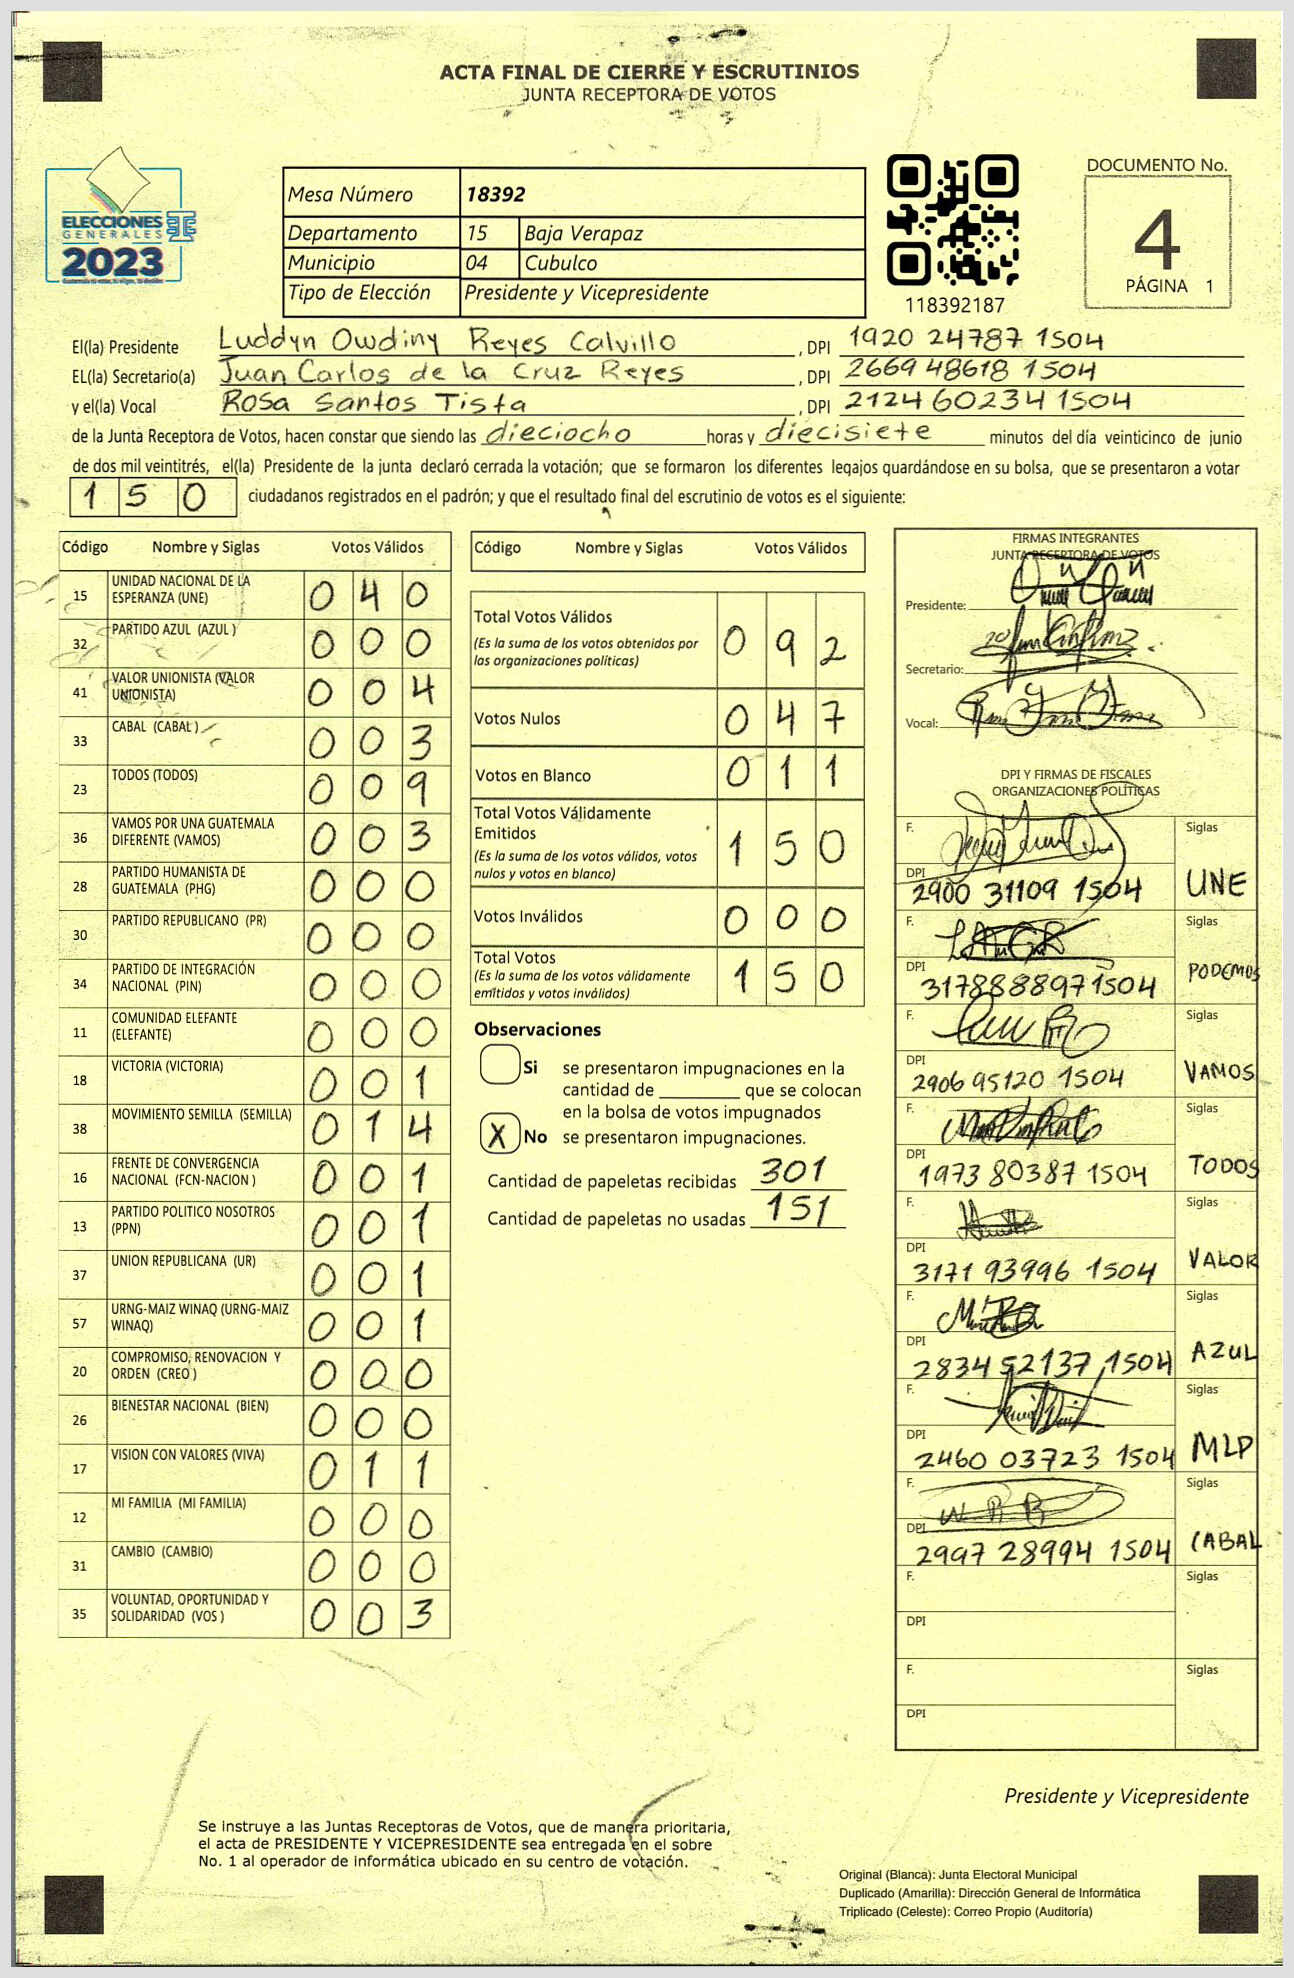 ACTA FINAL DE CIERRE Y ESCRUTINIOS
JUNTA RECEPTORA DE VOTOS
ELECCIONES
GENERALES
2023
Mesa Número 18392
Departamento 15 Baja Verapaz
Municipio 04 Cubulco
Tipo de Elección Presidente y Vicepresidente
118392187
DOCUMENTO No.
4
PÁGINA 1
El(la) Presidente Luddyn Owdiny Reyes Calvillo , DPI 1920 24787 1504
EL(la) Secretario(a) Juan Carlos de la Cruz Reyes , DPI 2669 48618 1504
y el(la) Vocal Rosa Santos Tista , DPI 2124 60234 1504
de la Junta Receptora de Votos, hacen constar que siendo las dieciocho horas y diecisiete minutos del día veinticinco de junio
de dos mil veintitrés, el(la) Presidente de la junta declaró cerrada la votación; que se formaron los diferentes legajos guardándose en su bolsa, que se presentaron a votar
150 ciudadanos registrados en el padrón; y que el resultado final del escrutinio de votos es el siguiente:
Código Nombre y Siglas Votos Válidos
15 UNIDAD NACIONAL DE LA ESPERANZA (UNE) 0 4 0
32 PARTIDO AZUL (AZUL ) 0 0 0
41 VALOR UNIONISTA (VALOR UNIONISTA) 0 0 4
33 CABAL (CABAL ) 0 0 3
23 TODOS (TODOS) 0 0 9
36 VAMOS POR UNA GUATEMALA DIFERENTE (VAMOS) 0 0 3
28 PARTIDO HUMANISTA DE GUATEMALA (PHG) 0 0 0
30 PARTIDO REPUBLICANO (PR) 0 0 0
34 PARTIDO DE INTEGRACIÓN NACIONAL (PIN) 0 0 0
11 COMUNIDAD ELEFANTE (ELEFANTE) 0 0 0
18 VICTORIA (VICTORIA) 0 0 1
38 MOVIMIENTO SEMILLA (SEMILLA) 0 1 4
16 FRENTE DE CONVERGENCIA NACIONAL (FCN-NACION ) 0 0 1
13 PARTIDO POLITICO NOSOTROS (PPN) 0 0 1
37 UNION REPUBLICANA (UR) 0 0 1
57 URNG-MAIZ WINAQ (URNG-MAIZ WINAQ) 0 0 1
20 COMPROMISO, RENOVACION Y ORDEN (CREO ) 0 0 0
26 BIENESTAR NACIONAL (BIEN) 0 0 0
17 VISION CON VALORES (VIVA) 0 1 1
12 MI FAMILIA (MI FAMILIA) 0 0 0
31 CAMBIO (CAMBIO) 0 0 0
35 VOLUNTAD, OPORTUNIDAD Y SOLIDARIDAD (VOS ) 0 0 3
Código Nombre y Siglas Votos Válidos
Total Votos Válidos 0 9 2
(Es la suma de los votos obtenidos por
las organizaciones políticas)
Votos Nulos 0 4 7
Votos en Blanco 0 1 1
Total Votos Válidamente
Emitidos 1 5 0
(Es la suma de los votos válidos, votos
nulos y votos en blanco)
Votos Inválidos 0 0 0
Total Votos 1 5 0
(Es la suma de los votos válidamente
emitidos y votos inválidos)
Observaciones
Si se presentaron impugnaciones en la
cantidad de ________ que se colocan
en la bolsa de votos impugnados
X No se presentaron impugnaciones.
Cantidad de papeletas recibidas 301
Cantidad de papeletas no usadas 151
FIRMAS INTEGRANTES
JUNTA RECEPTORA DE VOTOS
Presidente:
Secretario:
Vocal:
DPI Y FIRMAS DE FISCALES
ORGANIZACIONES POLÍTICAS
F. Siglas
DPI 2900 31109 1504 UNE
F. Siglas
DPI 3178888971504 PODEMOS
F. Siglas
DPI 2906 95120 1504 VAMOS
F. Siglas
DPI 1973 80387 1504 TODOS
F. Siglas
DPI 3171 93996 1504 VALOR
F. Siglas
DPI 2834 52137 1504 AZUL
F. Siglas
DPI 2460 03723 1504 MLP
F. Siglas
DPI 2997 28994 1504 CABAL
F. Siglas
DPI
F. Siglas
DPI
Presidente y Vicepresidente
Se instruye a las Juntas Receptoras de Votos, que de manera prioritaria,
el acta de PRESIDENTE Y VICEPRESIDENTE sea entregada en el sobre
No. 1 al operador de informática ubicado en su centro de votación.
Original (Blanca): Junta Electoral Municipal
Duplicado (Amarilla): Dirección General de Informática
Triplicado (Celeste): Correo Propio (Auditoría)